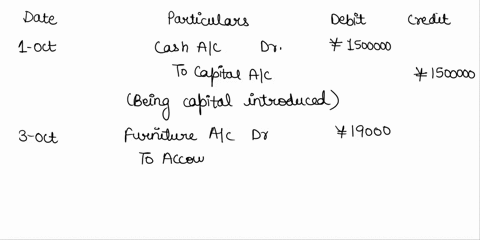 Date Particulars Debit Credit
1-oct Cash A/C Dr. ¥ 1500000
To Capital A/C ¥ 1500000
(Being capital introduced)
3-oct Furniture A/c Dr ¥ 19000
To Accou